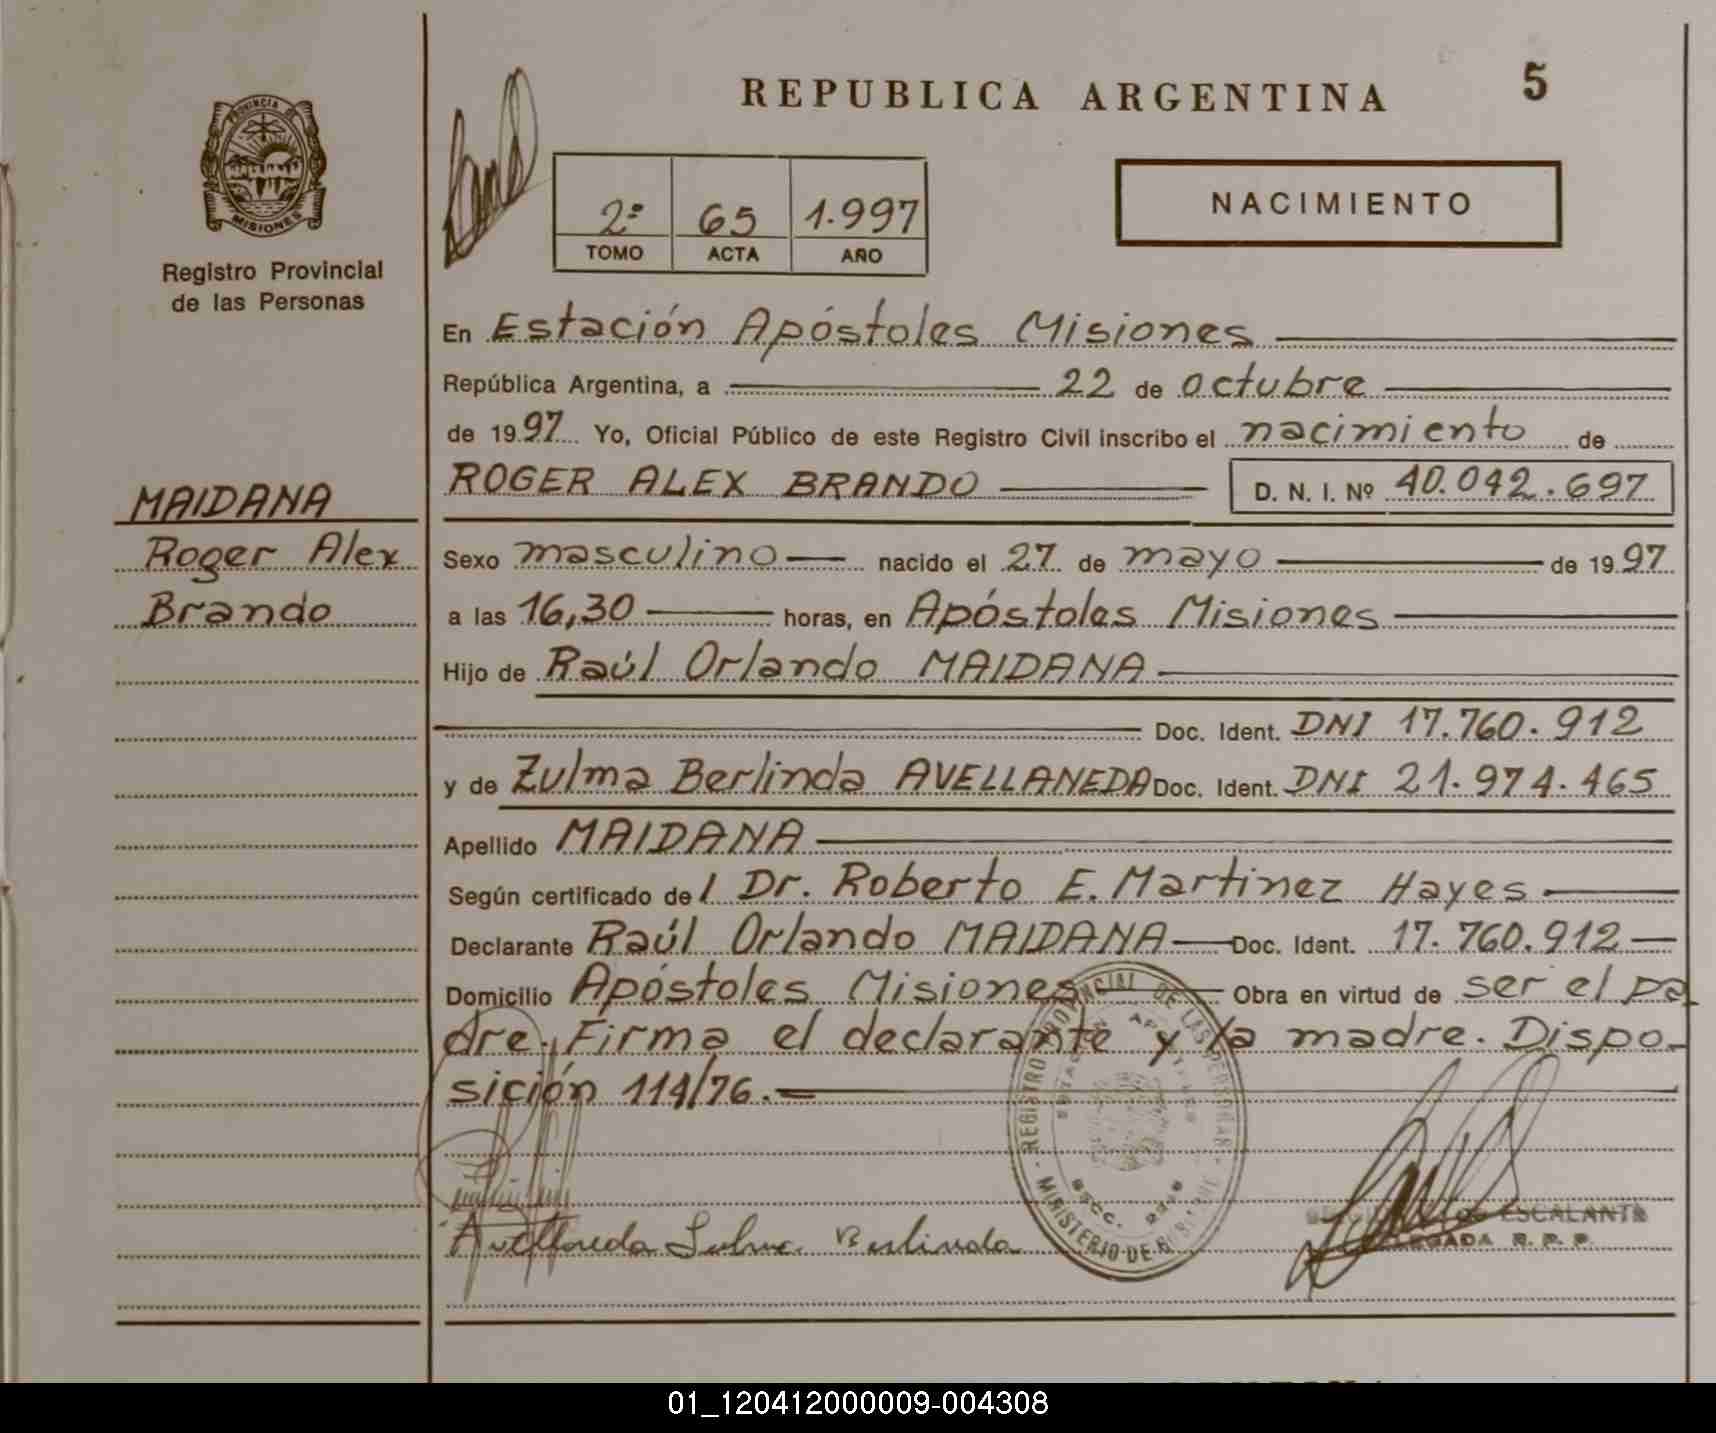 REPUBLICA ARGENTINA
5
PROVINCIA DE
MISIONES
Registro Provincial
de las Personas
2º 65 1.997
TOMO ACTA AÑO
NACIMIENTO
En Estación Apóstoles Misiones
República Argentina, a 22 de octubre
de 1997 Yo, Oficial Público de este Registro Civil inscribo el nacimiento de
ROGER ALEX BRANDO D. N. I. Nº 40.042.697
MAIDANA
Roger Alex
Brando
Sexo masculino nacido el 27 de mayo de 1997
a las 16,30 horas, en Apóstoles Misiones
Hijo de Raúl Orlando MAIDANA
Doc. Ident. DNI 17.760.912
y de Zulma Berlinda AVELLANEDA Doc. Ident. DNI 21.974.465
Apellido MAIDANA
Según certificado del Dr. Roberto E. Martinez Hayes
Declarante Raúl Orlando MAIDANA Doc. Ident. 17.760.912
Domicilio Apóstoles Misiones Obra en virtud de ser el pa-
dre. Firma el declarante y la madre. Dispo-
sición 114/76.
REGISTRO PROVINCIAL DE LAS PERSONAS
MINISTERIO DE
Avellaneda Zulma Berlinda
ESCALANTE
R. P. P.
01_120412000009-004308